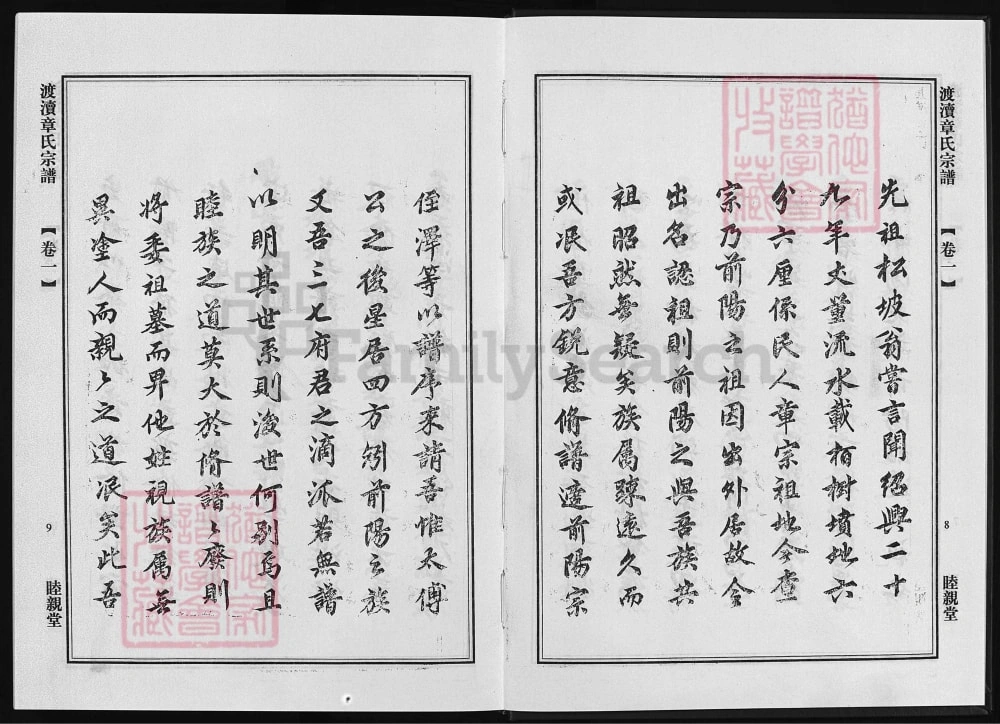 渡瀆章氏宗譜
【卷一】
8
睦親堂
先祖松坡翁嘗言聞紹興二十
九年丈量流水載栢樹墳地六
分六厘係民人章宗祖地今查
宗乃前陽之祖因出外居故令
出名認祖則前陽之與吾族共
祖昭然無疑矣族屬踈遠久而
或泯吾方銳意脩譜適前陽宗
侄澤等以譜序來請吾惟太傅
公之後星居四方矧前陽之族
又吾三七府君之滴派若無譜
以明其世系則後世何别焉且
睦族之道莫大於脩譜〻廢則
將委祖墓而畀他姓視族属無
異塗人而親〻之道泯矣此吾
渡瀆章氏宗譜
【卷一】
9
睦親堂
FamilySearch